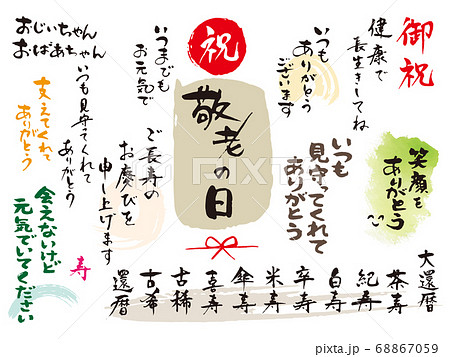 御祝
健康で
長生きしてね
いつも
ありがとう
ございます
祝
敬老の日
いつまでも
お元気で
おじいちゃん
おばあちゃん
笑顔を
ありがとう
いつも
見守ってくれて
ありがとう
ご長寿の
お慶びを
申し上げます
いつも見守ってくれて
ありがとう
支えてくれて
ありがとう
会えないけど
元気でいてください
寿
大還暦
茶寿
紀寿
白寿
卒寿
米寿
傘寿
喜寿
古稀
古希
還暦
PIXTA
pixta.jp - 68867059